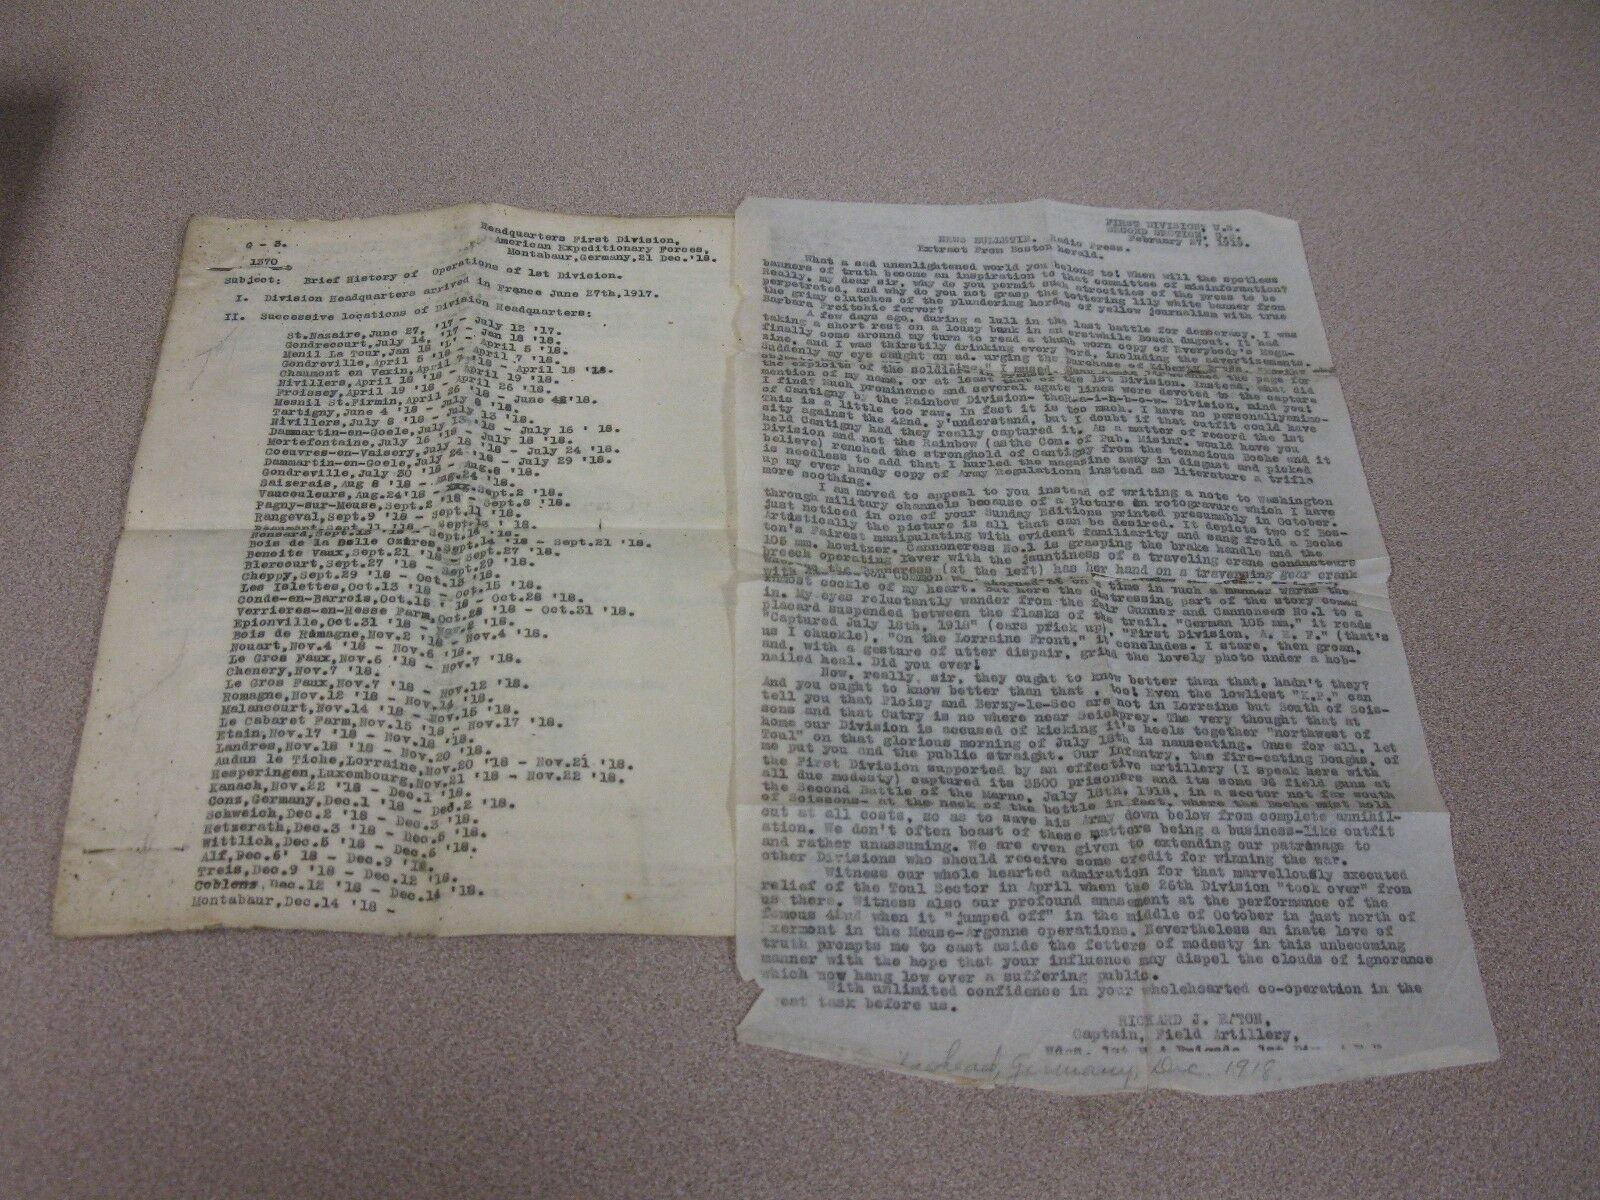 G - 3.
Headquarters First Division,
American Expeditionary Forces,
Montabaur,Germany,21 Dec.'18.
1370
Subject: Brief History of Operations of 1st Division.
I. Division Headquarters arrived in France June 27th,1917.
II. Successive locations of Division Headquarters:
St.Nazaire,June 27, '17 - July 12 '17.
Gondrecourt,July 14, '17 - Jan 18 '18.
Menil La Tour,Jan 18 - April 5 '18.
Gondreville,April 5 '18 - April 7 '18.
Chaumont en Vexin,April 7 '18 - April 18 '18.
Nivillers,April 18 '18 - April 19 '18.
Froissey,April 19 '18 - April 26 '18.
Mesnil St.Firmin,April 26 '18 - June 4 '18.
Tartigny,June 4 '18 - July 8 '18.
Nivillers,July 8 '18 - July 13 '18.
Dammartin-en-Goele,July 13 - July 16 '18.
Mortefontaine,July 16 '18 - July 18 '18.
Coeuvres-en-Valsery,July 18 '18 - July 24 '18.
Dammartin-en-Goele,July 24 '18 - July 29 '18.
Gondreville,July 30 '18 - Aug.8 '18.
Saizerais,Aug 8 '18 - Aug.24 '18.
Vaucouleurs,Aug.24'18 - Sept.2 '18.
Pagny-sur-Meuse,Sept.2 '18 - Sept.8 '18.
Rangeval,Sept.9 '18 - Sept.11 '18.
Sept.11 '18 - Sept.13 '18.
Nonsard,Sept.
Bois de la Belle Sept.14 '18 - Sept.21 '18.
Benoite Vaux,Sept.21 '18 - Sept.27 '18.
Blercourt,Sept.27 '18 - Sept.29 '18.
Cheppy,Sept.29 '18 - Oct.13 '18.
Les Islettes,Oct.13 '18 - Oct.15 '18.
Conde-en-Barrois,Oct.15 '18 - Oct.28 '18.
Verrieres-en-Hesse Farm,Oct.28 '18 - Oct.31 '18.
Epionville,Oct.31 '18 -
Bois de Romagne,Nov.2 '18 - Nov.4 '18.
Nouart,Nov.4 '18 - Nov.6 '18.
Le Gros Faux,Nov.6 '18 - Nov.7 '18.
Chenery,Nov.7 '18.
Le Gros Faux,Nov.7 '18 - Nov.12 '18.
Romagne,Nov.12 '18 - Nov.14 '18.
Malancourt,Nov.14 '18 - Nov.15 '18.
Le Cabaret Farm,Nov.15 '18 - Nov.17 '18.
Etain,Nov.17 '18 - Nov.18 '18.
Landres,Nov.18 '18 - Nov.20 '18.
Audun le Tiche,Lorraine,Nov.20 '18 - Nov.21 '18.
Hesperingen,Luxembourg,Nov.21 '18 - Nov.22 '18.
Kanach,Nov.22 '18 - Dec.1 '18.
Cons,Germany,Dec.1 '18 - Dec.2 '18.
Schweich,Dec.2 '18 - Dec.3 '18.
Hetzerath,Dec.3 '18 - Dec.5 '18.
Wittlich,Dec.5 '18 - Dec.6 '18.
Alf,Dec.6' 18 - Dec.9 '18.
Treis,Dec.9 '18 - Dec.12 '18.
Coblenz,Dec.12 '18 - Dec.14 '18.
Montabaur,Dec.14 '18 -
FIRST DIVISION, U.S.
SECOND SECTION, G.S.
NEWS BULLETIN. Radio Press. February 27, 1919.
Extract From Boston Herald.
What a sad unenlightened world you belong to! When will the spotless
banners of truth become an inspiration to that committee of misinformation?
Really, my dear sir, why do you permit such atrocities of the press to be
perpetrated, and why do you not grasp the tottering lily white banner from
the grimy clutches of the plundering hordes of yellow journalism with true
Barbara Freitchie fervor?
A few days ago, during a lull in the last battle for democracy, I was
taking a short rest on a lousy bunk in an erstwhile Bosch dugout. It had
finally come around my turn to read a thumb worn copy of Everybody's Maga-
zine, and I was thirstily drinking every word, including the advertisements.
Suddenly my eye caught an ad. urging the purchase of Liberty
"exploits of the soldiers," I mused. the page for
mention of my name, or at least that of the 1st Division. Instead, what did
I find? Much prominence and several agate lines were devoted to the capture
of Cantigny by the Rainbow Division- the R-a-i-n-b-o-w- Division, mind you!
This is a little too raw. In fact it is too much. I have no personal
sity against the 42nd, y'understand, but I doubt if that outfit could have
held Cantigny had they really captured it. As a matter of record the 1st
Division and not the Rainbow (as the Com. of Pub. Misinf. would have you
believe) renched the stronghold of Cantigny from the tenacious Boche and it
is needless to add that I hurled the magazine away in disgust and picked
up my ever handy copy of Army Regulations instead as literature a trifle
more soothing.
I am moved to appeal to you instead of writing a note to Washington
through military channels because of a picture in rotogravure which I have
just noticed in one of your Sunday Editions printed presumably in October.
Artistically the picture is all that can be desired. It depicts two of Bos-
ton's Fairest manipulating with evident familiarity and sang froid a Boche
105 mm. howitzer. Cannoneress No.1 is grasping the brake handle and the
breech operating lever with the jauntiness of a traveling crane conductress
(at the left) has her hand on a traversing gear crank
with Common time in such a manner warms the
inmost cockle of my heart. But here the distressing part of the story comes
in. My eyes reluctantly wander from the fair Gunner and Cannoneer No.1 to a
placard suspended between the flasks of the trail. "German 105 mm," it reads
"Captured July 18th, 1918" (ears prick up), "First Division, A. E. F." (that's
us I chuckle), "On the Lorraine Front," it concludes. I stare, then groan,
and, with a gesture of utter dispair, grind the lovely photo under a hob-
nailed heal. Did you ever!
Now, really, sir, they ought to know better than that, hadn't they?
And you ought to know better than that, too! Even the lowliest "K.P." can
tell you that Ploisy and Berzy-le-Sec are not in Lorraine but South of Sois-
sons and that Cutry is no where near Seicheprey. The very thought that at
home our Division is accused of kicking it's heels together "northwest of
Toul" on that glorious morning of July 18th is nauseating. Once for all, let
me put you and the public straight. Our Infantry, the fire-eating Doughs, of
the First Division supported by an effective artillery (I speak here with
all due modesty) captured its 3500 prisoners and its some 96 field guns at
the Second Battle of the Marne, July 18th, 1918, in a sector not far south
of Soissons- at the neck of the bottle in fact, where the Boche must hold
out at all costs, so as to save his Army down below from complete annihil-
ation. We don't often boast of these matters being a business-like outfit
and rather unassuming. We are even given to extending our patronage to
other Divisions who should receive some credit for winning the war.
Witness our whole hearted admiration for that marvellously executed
relief of the Toul Sector in April when the 26th Division "took over" from
us there. Witness also our profound amazement at the performance of the
famous 42nd when it "jumped off" in the middle of October in just north of
Exermont in the Meuse-Argonne operations. Nevertheless an inate love of
truth prompts me to cast aside the fetters of modesty in this unbecoming
manner with the hope that your influence may dispel the clouds of ignorance
which now hang low over a suffering public.
With unlimited confidence in your wholehearted co-operation in the
task before us.
RICHARD J. EATON,
Captain, Field Artillery,
Germany, Dec. 1918